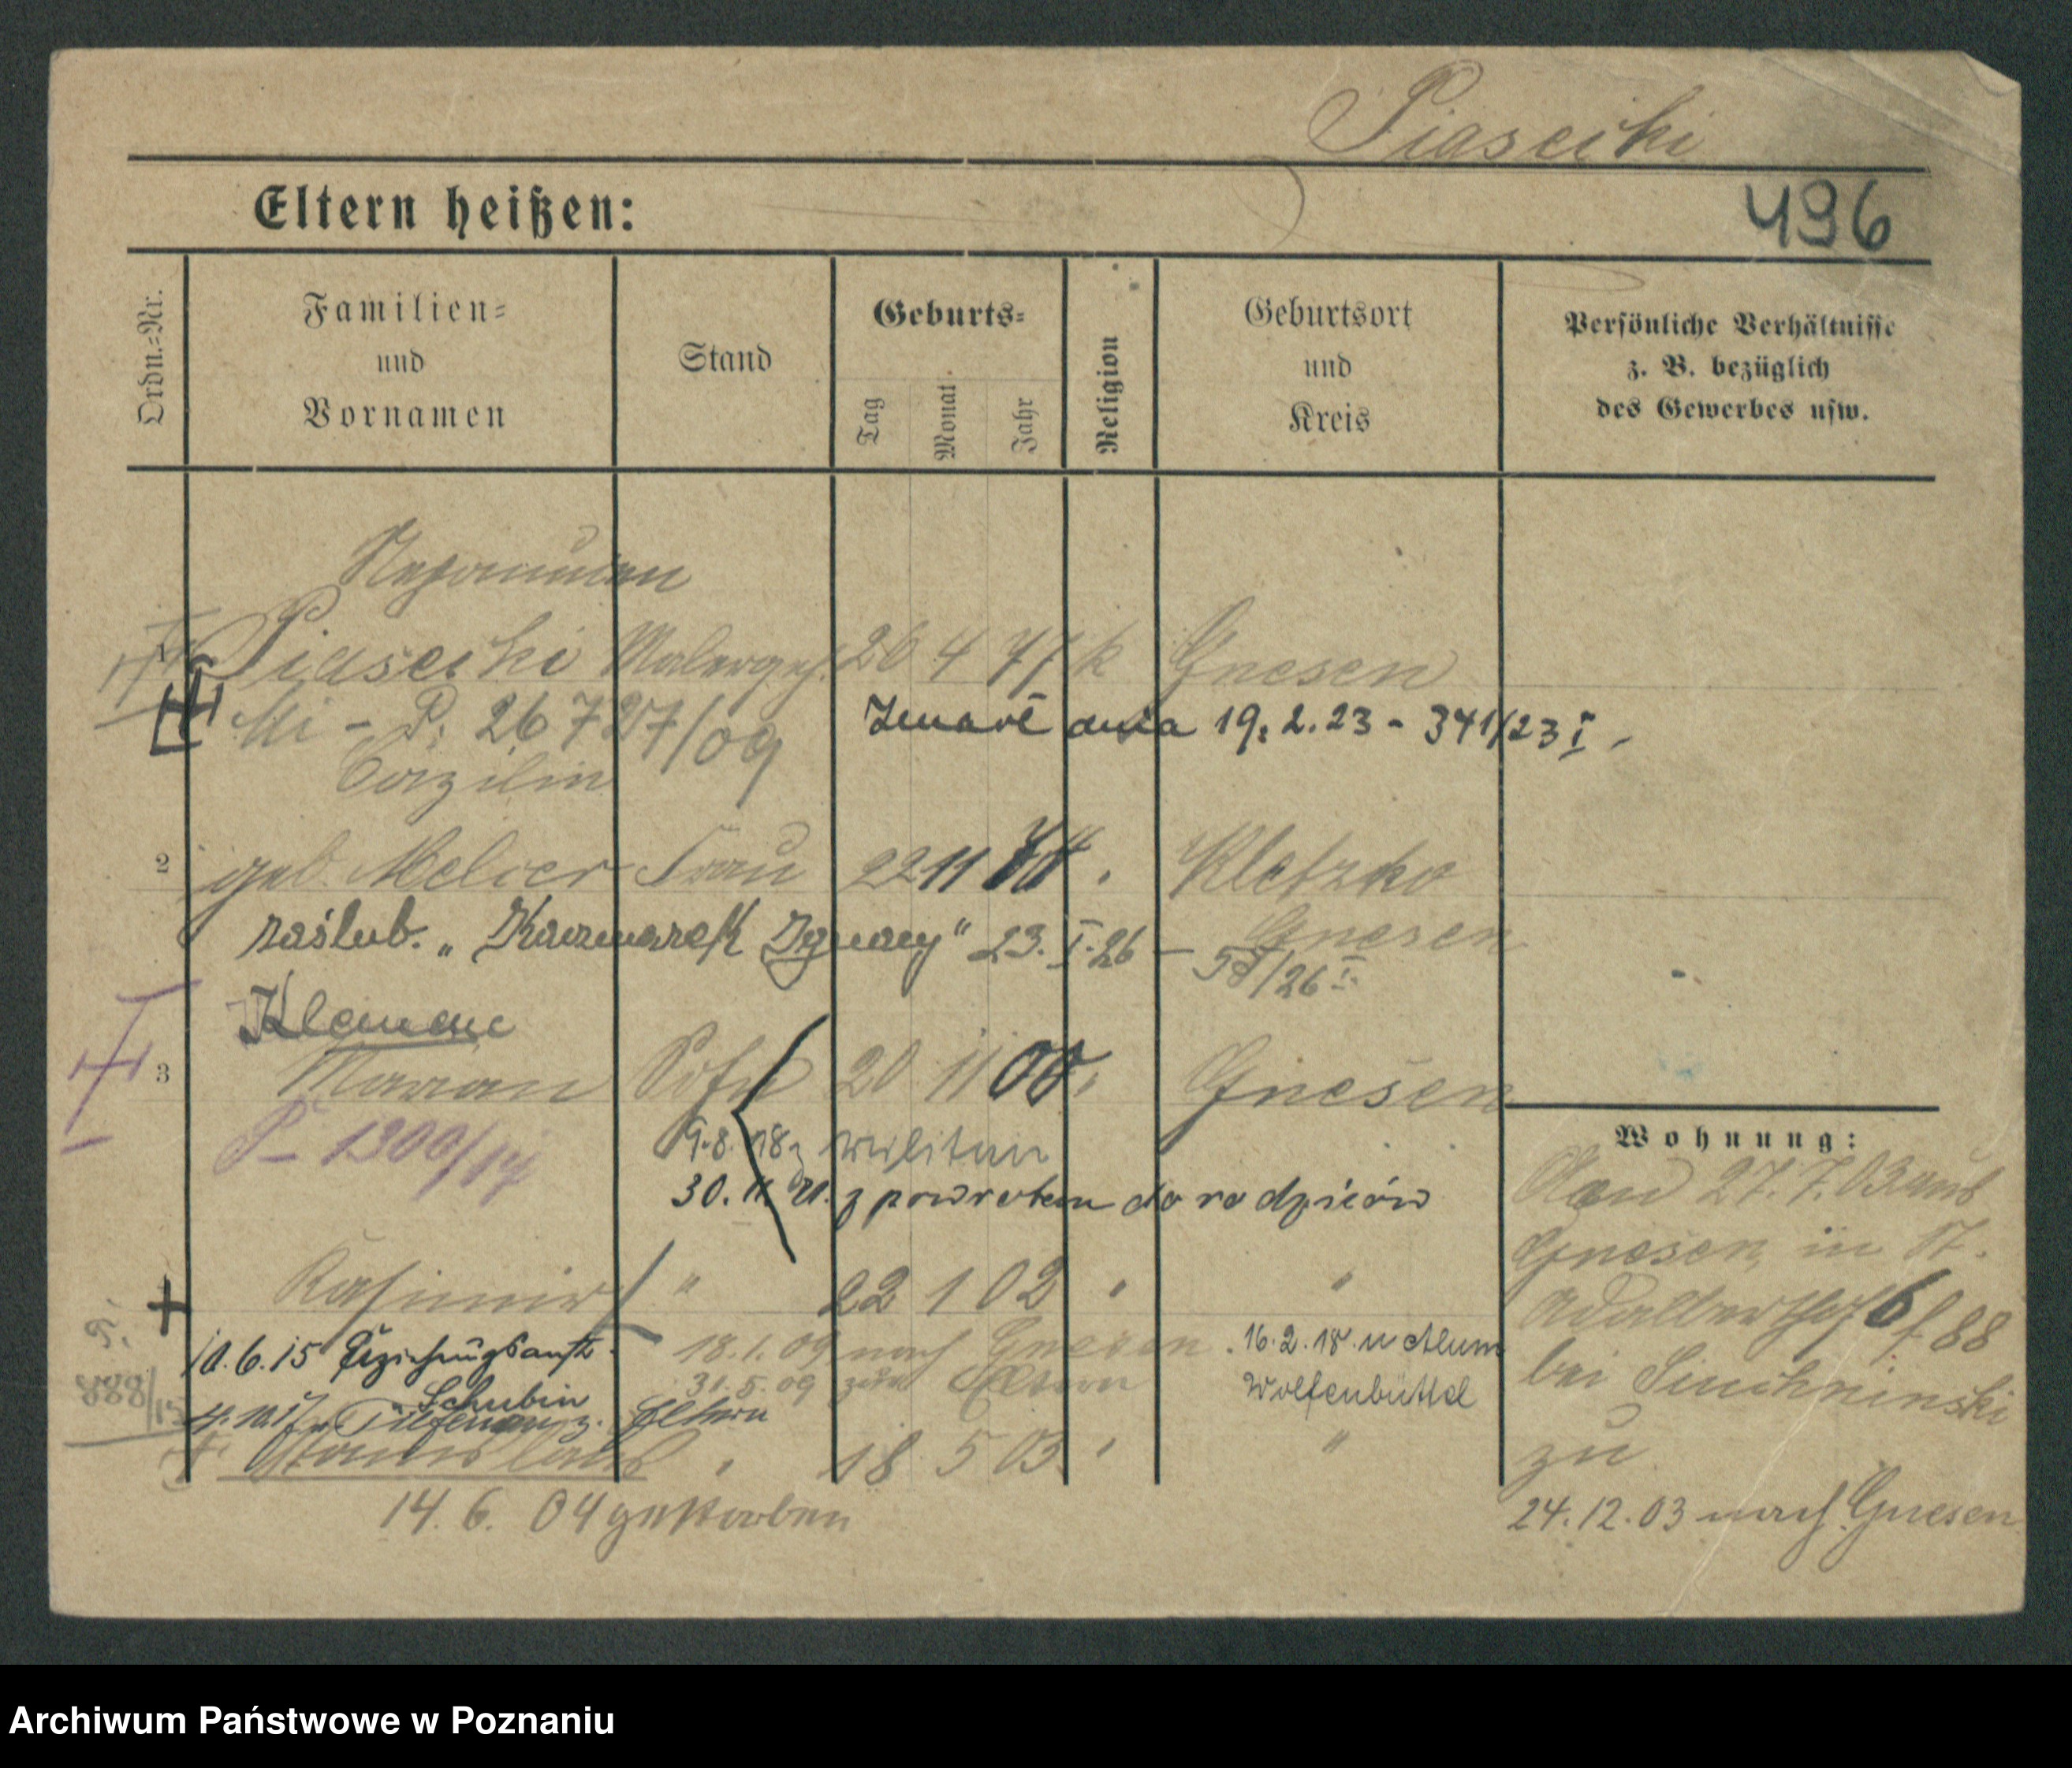 Piasecki
Eltern heißen:
496
Ordn.-Nr.
Familien-
und
Vornamen
Stand
Geburts-
Tag
Monat
Jahr
Religion
Geburtsort
und
Kreis
Persönliche Verhältnisse
z. B. bezüglich
des Gewerbes usw.
Nepomucen
Piasecki Malergeh. 26 4 77 k Gnesen
Mi - P. 26 7 27/09
Zmarł dnia 19.2.23 - 341/23 I
Cäzilia
2 geb. Melcer Frau 22 11 Kletzko
zaślub. „Kaczmarek Ignacy" 23. I. 26 - 58/26 I.
Gnesen
Klemens
3 Marian Sohn 20 11 00 Gnesen
P- 1300/14
9.8.18 z militär
30. 11 21. z powrotem do rodziców
Wohnung:
27.7.03 aus
Gnesen, in St.
Adalbertstr 6 f 88
bei
zu
24.12.03 nach Gnesen
Kasimir " 22 1 02 " "
10.6.15 Erziehungsanst.
Schubin
18.1.09 nach Gnesen.
31.5.09 zu Eltern
16.2.18 n Ahlum
Wolfenbüttel
T.
888/15
z. Eltern
Stanislaus " 18 5 03 " "
14. 6. 04 gestorben
Archiwum Państwowe w Poznaniu